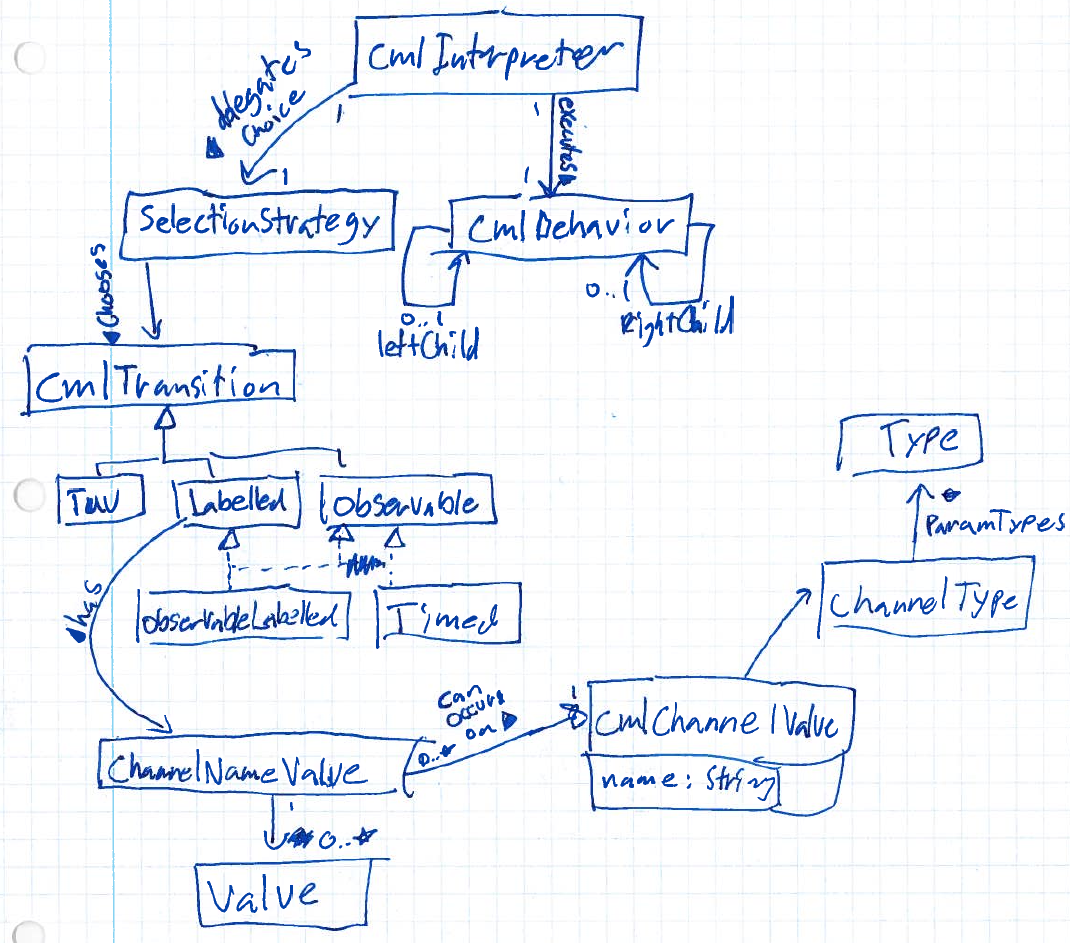 CmlInterpreter
delegates
choice
1
1
executes
1
1
SelectionStrategy
CmlBehavior
chooses
0..1
leftChild
0..1
RightChild
CmlTransition
Type
Labelled
Observable
*
ParamTypes
ObservableLabelled
Timed
ChannelType
has
can
occure
on
1
0..*
CmlChannelValue
name: String
ChannelNameValue
1
0..*
Value